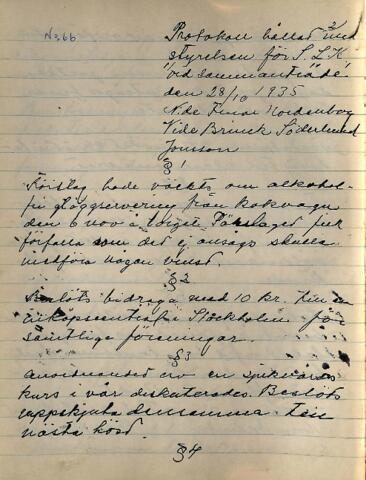 No 66
Protokoll hållet med
styrelsen för S. L. K.
vid sammanträde
den 28/10 1935
N.de Einar Nordenborg
Vide Brinck Söderlund
Jonsson
§ 1
Förslag hade väckts om alkohol-
fri glöggservering från kokvagn
den 6 nov å torget. Förslaget fick
förfalla som det ej ansågs skulle
medföra någon vinst.
§ 2
Beslöts bidraga med 10 kr. till en
inköpscentral i Stockholm för
samtliga föreningar.
§ 3
Anordnandet av en sjukvårds
kurs i vår diskuterades. Beslöts
uppskjuta densamma till
nästa höst.
§ 4